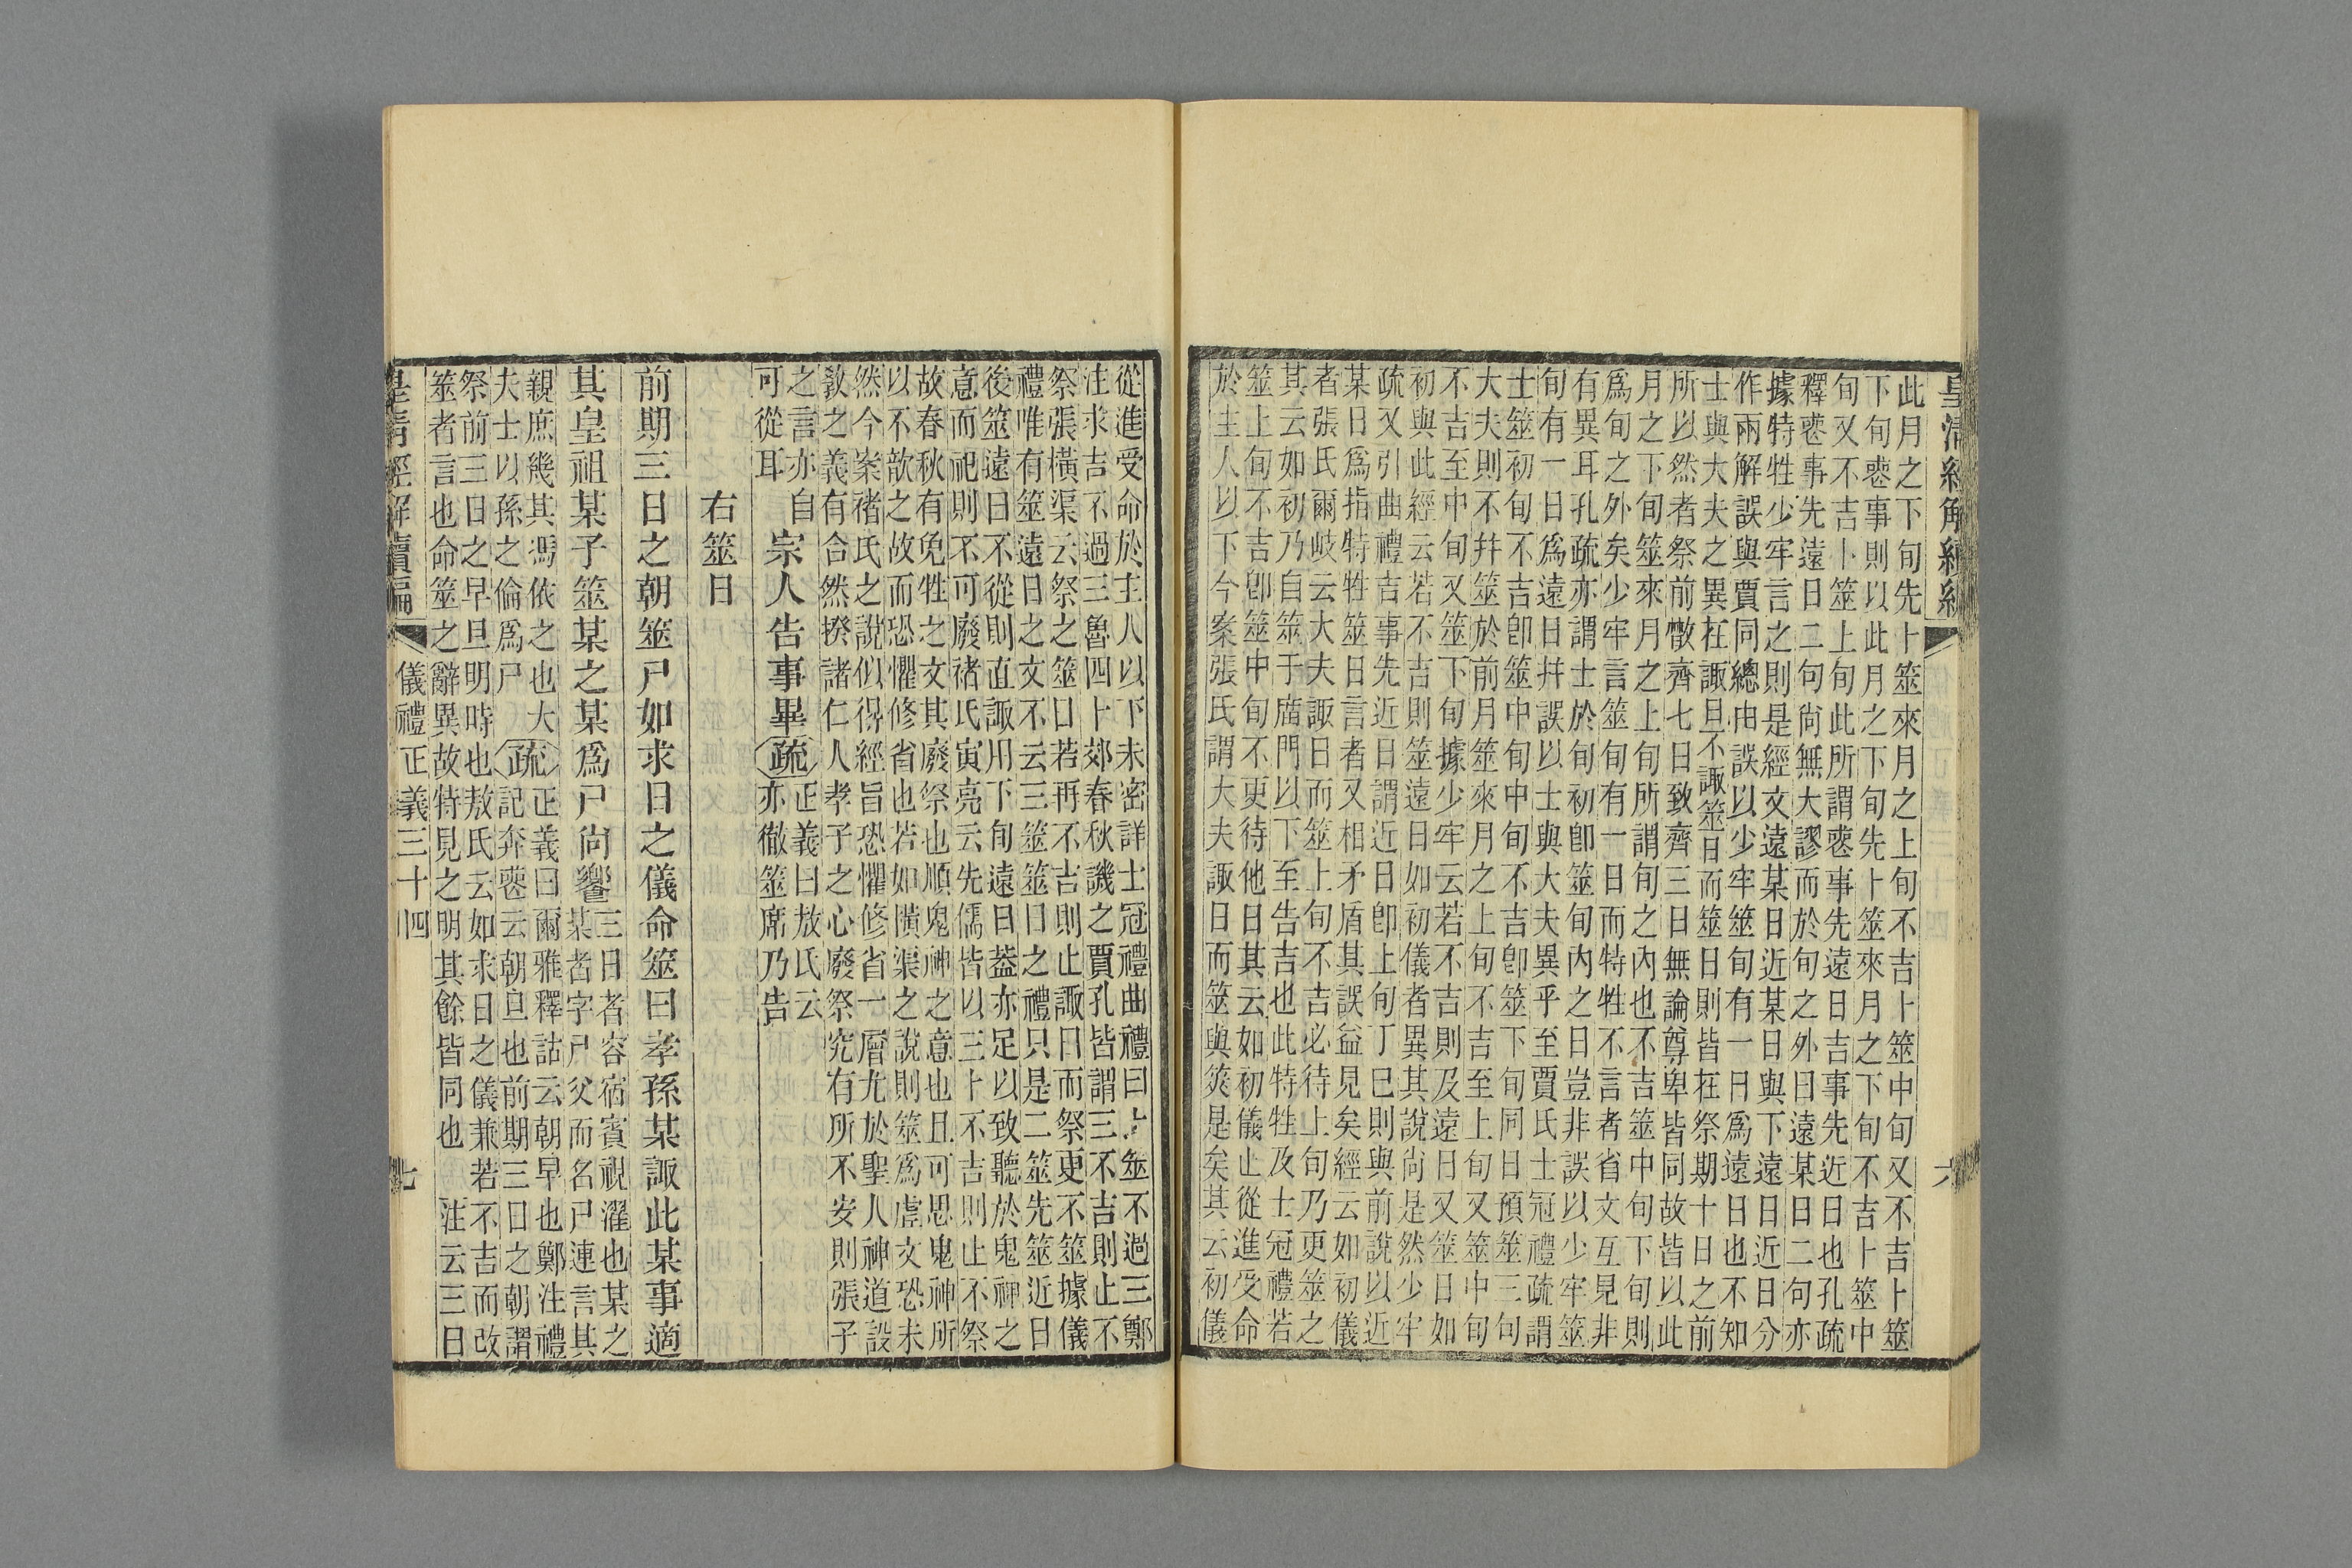 皇清經解續編 六
此月之下旬先卜筮來月之上旬不吉卜筮中旬又不吉卜筮
下旬喪事則以此月之下旬先卜筮來月之下旬不吉卜筮中
旬又不吉卜筮上旬此所謂喪事先遠日吉事先近日也孔疏
釋喪事先遠日二句尚無大謬而於旬之外曰遠某日二句亦
據特牲少牢言之則是經文遠某日近某日與下遠日近日分
作兩解誤與賈同總由誤以少牢筮旬有一日爲遠日也不知
士與大夫之異在諏日不諏筮日而筮日則皆在祭期十日之前
所以然者祭前散齊七日致齊三日無論尊卑皆同故皆以此
月之下旬筮來月之上旬所謂旬之內也不吉筮中旬下旬則
爲旬之外矣少牢言筮旬有一日而特牲不言者省文互見非
有異耳孔疏亦謂士於旬初卽筮旬內之日豈非誤以少牢筮
旬有一日爲遠日幷誤以士與大夫異乎至賈氏士冠禮疏謂
士筮初旬不吉卽筮中旬中旬不吉卽筮下旬同日預筮三旬
大夫則不幷筮於前月筮來月之上旬不吉至上旬又筮中旬
不吉至中旬又筮下旬據少牢云若不吉則及遠日又筮日如
初與此經云若不吉則筮遠日如初儀者異其說尚是然少牢
疏又引曲禮吉事先近日謂近日卽上旬丁巳則與前說以近
某日爲指特牲筮日言者又相矛盾其誤益見矣經云如初儀
者張氏爾岐云大夫諏日而筮上旬不吉必待上旬乃更筮之
其云如初乃自筮于廟門以下至告吉也此特牲及士冠禮若
筮上旬不吉卽筮中旬不更待他日其云如初儀止從進受命
於主人以下今案張氏謂大夫諏日而筮與筴是矣其云初儀
從進受命於主人以下未密詳士冠禮曲禮曰卜筮不過三鄭
注求吉不過三魯四卜郊春秋譏之賈孔皆謂三不吉則止不
祭張橫渠云祭之筮日若再不吉則止諏日而祭更不筮據儀
禮唯有筮遠日之文不云三筮筮日之禮只是二筮先筮近日
後筮遠日不從則直諏用下旬遠日蓋亦足以致聽於鬼神之
意而祀則不可廢褚氏寅亮云先儒皆以三卜不吉則止不祭
故春秋有免牲之文其廢祭也順鬼神之意也且可思鬼神所
以不歆之故而恐懼修省也若如橫渠之說則筮爲虛文恐未
然今案褚氏之說似得經旨恐懼修省一層尤於聖人神道設
敎之義有合然揆諸仁人孝子之心廢祭究有所不安則張子
之言亦自
可從耳
宗人告事畢
疏
正義曰敖氏云
亦徹筮席乃告
右筮日
前期三日之朝筮尸如求日之儀命筮曰孝孫某諏此某事適
其皇祖某子筮某之某爲尸尚饗
三日者容宿賓視濯也某之
某者字尸父而名尸連言其
親庶幾其馮依之也大
夫士以孫之倫爲尸
疏
正義曰爾雅釋詁云朝早也鄭注禮
記奔喪云朝旦也前期三日之朝謂
祭前三日之早旦明時也敖氏云如求日之儀兼若不吉而改
筮者言也命筮之辭異故特見之明其餘皆同也 注云三日
皇清經解續編 儀禮正義三十四 七